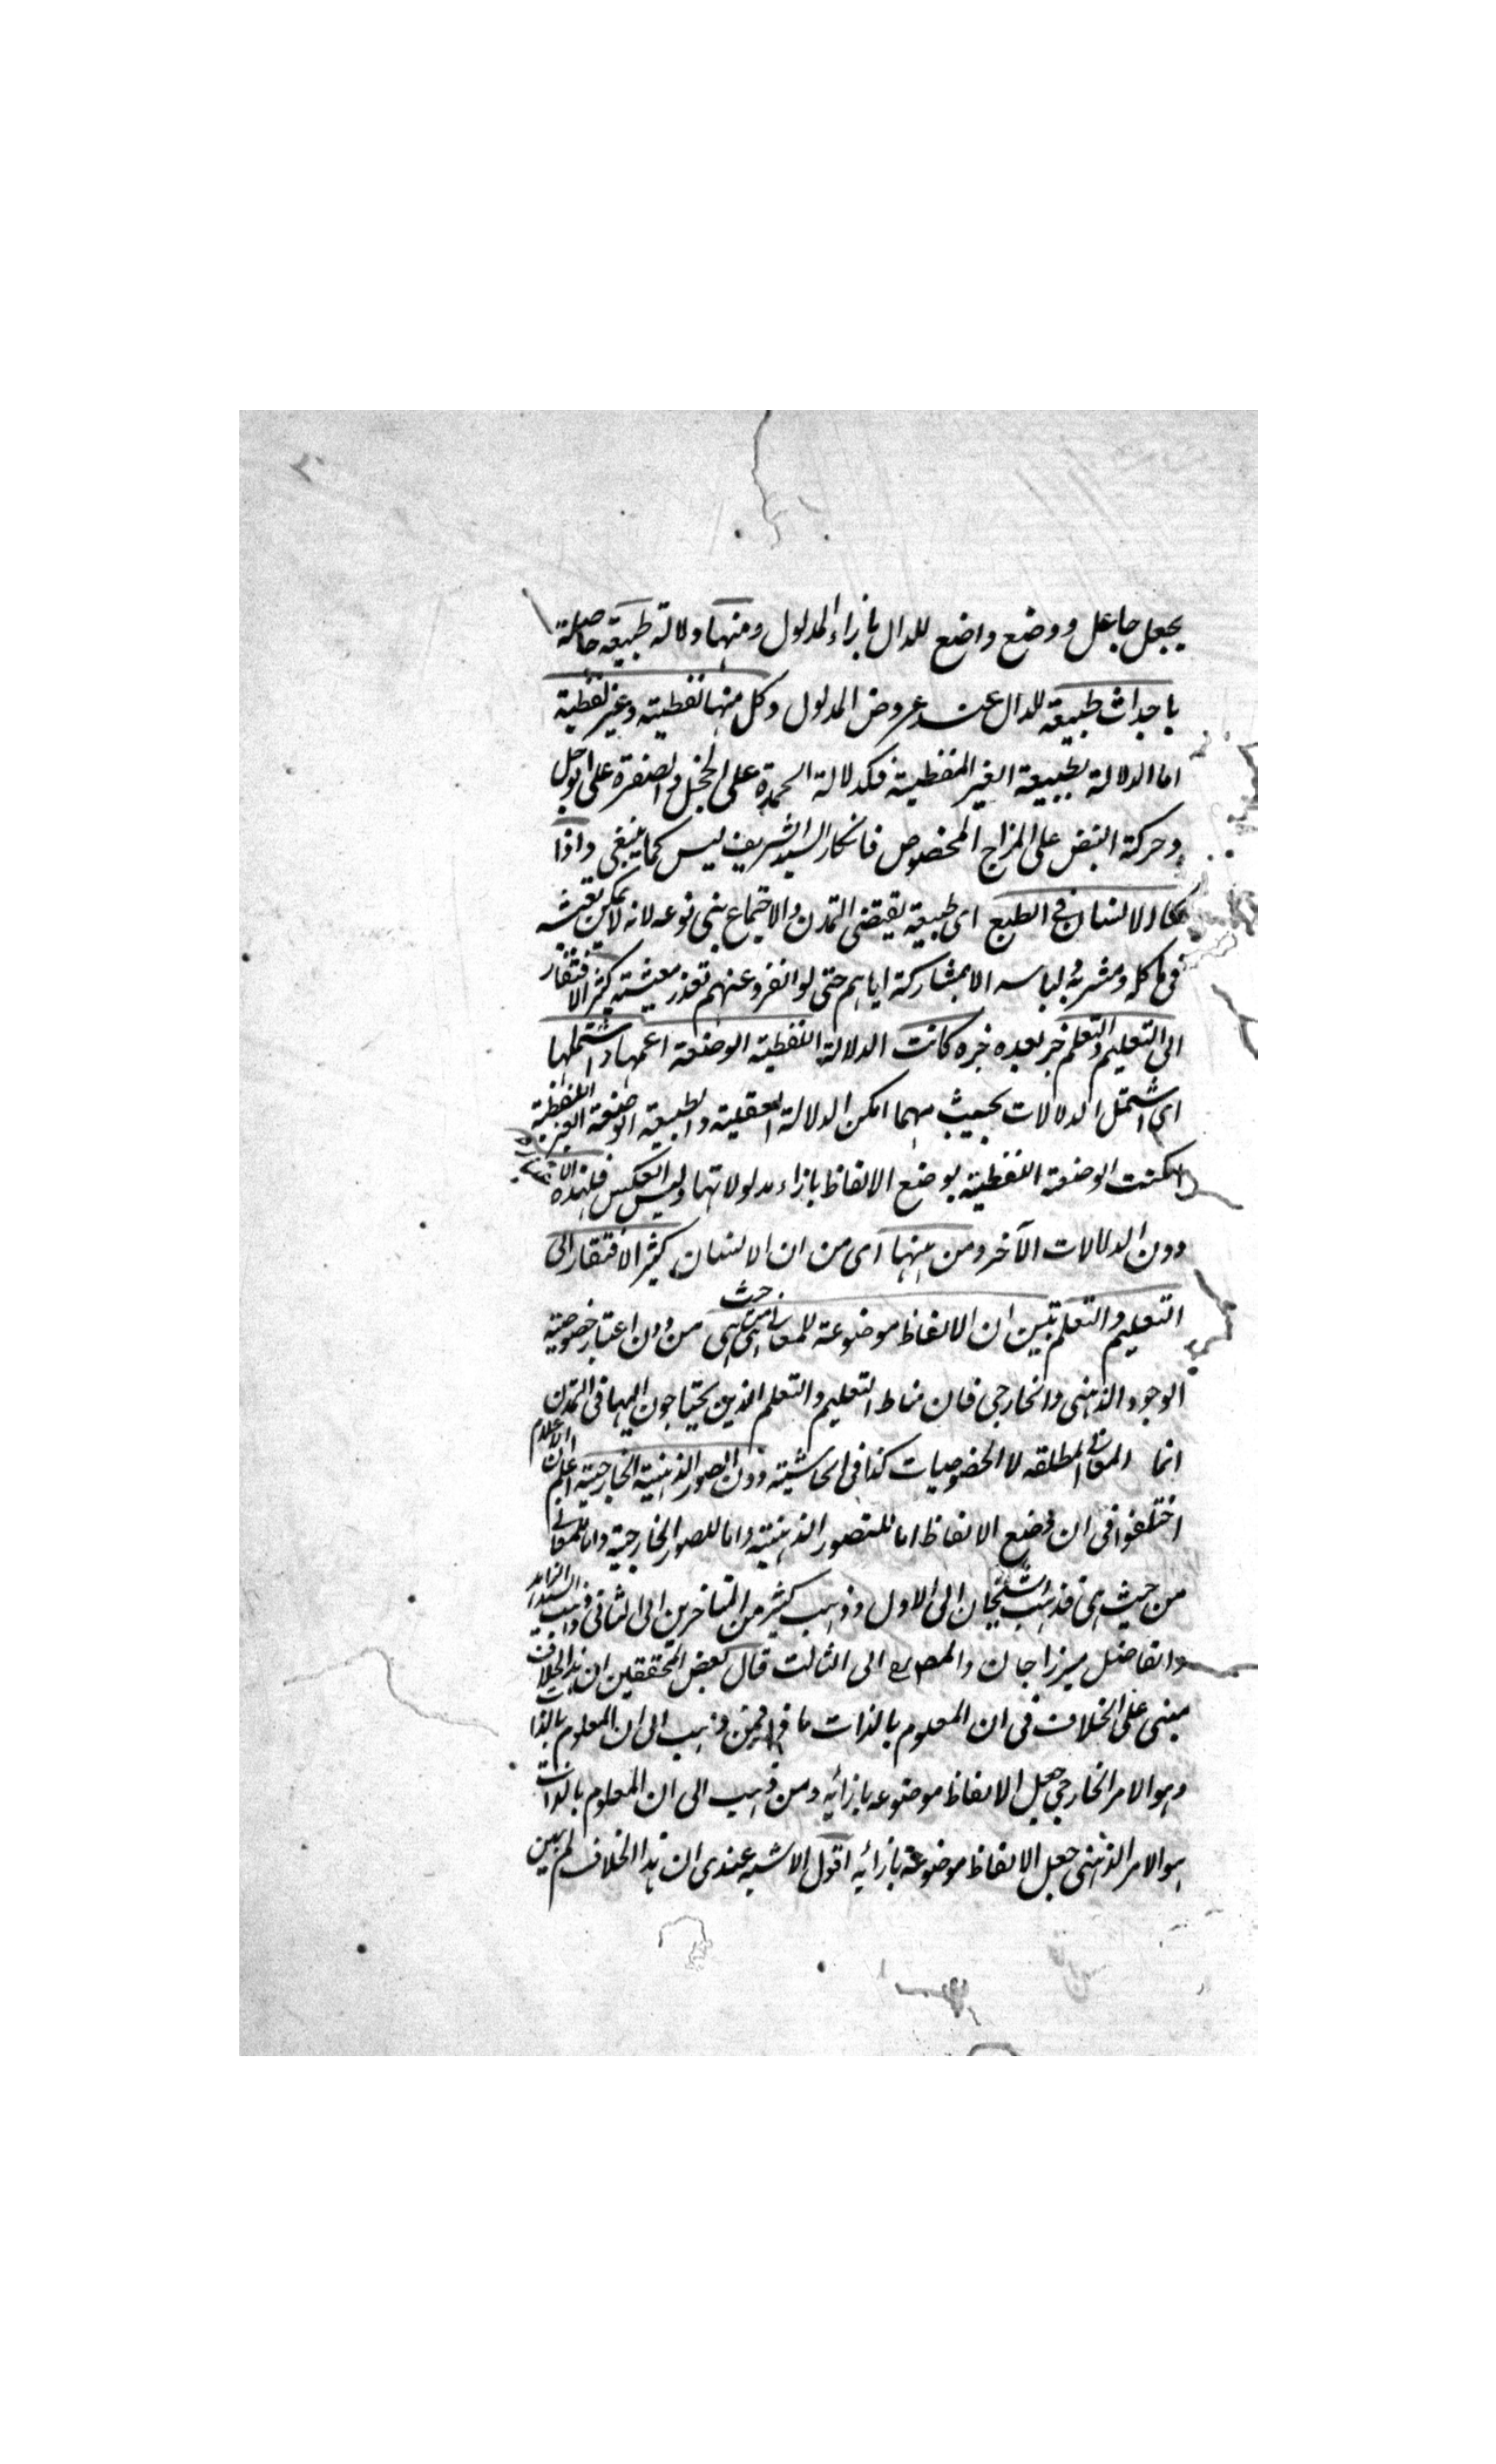 يجعل جاعل ووضع واضع للدال بازاء المدلول ومنها دلالة طبيعية حاصلة
باحداث طبيعة للدال عند عروض المدلول وكل منها لفظية وغير لفظية
اما الدلالة الطبيعية الغير اللفظية فكدلالة الحمرة على الخجل والصفرة على الوجل
وحركة النبض على المزاج المخصوص فانكار السيد الشريف ليس كما ينبغي واذا
كان الانسان في الطبع اى طبيعية يقتضى التمدن والاجتماع بنى نوعه لانه لا يمكن تعيشه
في ماكله ومشربه ولباسه الا بمشاركة اياهم حتى لو انفرد عنهم تعذر معيشته كثير الافتقار
الى التعليم والتعلم خبر بعده خبره كانت الدلالة اللفظية الوضعية اعمها واشملها
اى اشمل الدلالات بحيث مهما امكن الدلالة العقلية والطبيعية الوضعية الغير اللفظية
امكنت الوضعية اللفظية بوضع الالفاظ بازاء مدلولاتها وليس العكس فلهذه
دون الدلالات الآخر ومن ههنا اى من ان الانسان كثير الافتقار الى
التعليم والتعلم تبين ان الالفاظ موضوعة للمعانى من حيث هى هى من دون اعتبار خصوصية
الوجود الذهنى والخارجى فان مناط التعليم والتعلم الذين يحتاجون اليها في التمدن
انما المعانى المطلقه لا الخصوصيات كذا في الحاشية دون الصور الذهنية الخارجية اعلم ان الاعلام
اختلفوا في ان وضع الالفاظ اما للصور الذهنية واما للصور الخارجية واما للمعانى
من حيث هى فذهب الشيخان الى الاول وذهب كثير من المتاخرين الى الثانى وذهب السيد الزاهد
والفاضل ميرزا جان والمص الى الثالث قال بعض المحققين ان هذا الخلاف
مبنى على الخلاف في ان المعلوم بالذات ما هو فمن ذهب الى ان المعلوم بالذات
وهو الامر الخارجى جعل الالفاظ موضوعه بازائه ومن ذهب الى ان المعلوم بالذات
هو الامر الذهنى جعل الالفاظ موضوعة بازائه اقول الاشبه عندى ان هذا الخلاف لم يبين